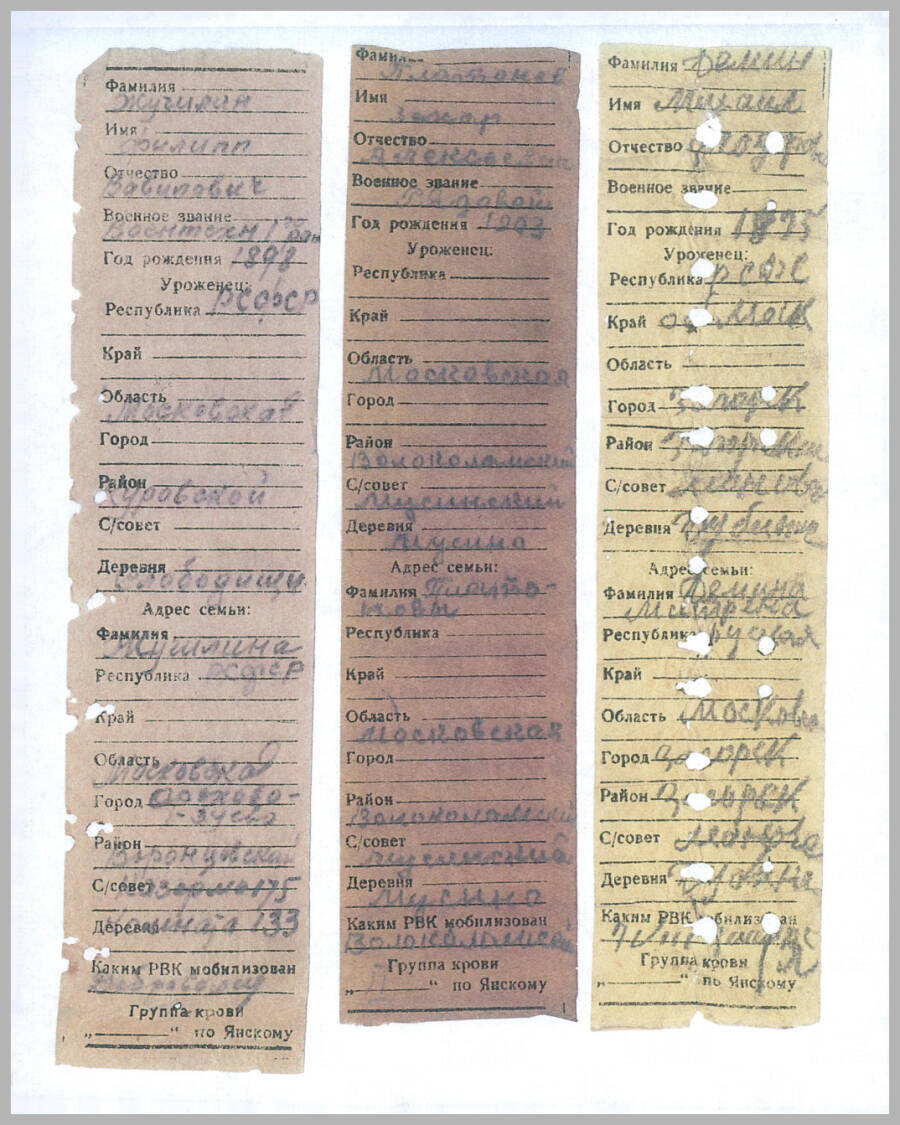 Фамилия
Жучилин
Имя
Филипп
Отчество
Военное звание
Воентехн
Год рождения 1898
Уроженец:
Республика РСФСР
Край
Область
Московская
Город
Район
Куровской
С/совет
Деревня
Слободищи
Адрес семьи:
Фамилия
Республика РСФСР
Край
Область
Московская
Город Орехово-
Зуево
Район
С/совет Казарма 175
Деревня Комната 133
Каким РВК мобилизован
Группа крови
„ “ по Янскому
Фамилия
Платонов
Имя
Захар
Отчество
Алексеевич
Военное звание
Рядовой
Год рождения 1903
Уроженец:
Республика
Край
Область
Московская
Город
Район
Волоколамский
С/совет
Мусинский
Деревня
Мусино
Адрес семьи:
Фамилия Плато-
новы
Республика
Край
Область
Московская
Город
Район
Волоколамский
С/совет
Мусинский
Деревня
Мусино
Каким РВК мобилизован
Волоколамский
Группа крови
„ II “ по Янскому
Фамилия Демин
Имя Михаил
Отчество
Военное звание
Год рождения
Уроженец:
Республика РСФС
Край об Моск
Область
Город Загорск
Район
С/совет
Деревня
Адрес семьи:
Фамилия Демина
Матрена
Республика
Край
Область Московс
Город Загорск
Район Загорск
С/совет
Деревня
Каким РВК мобилизован
Группа крови
„ “ по Янскому